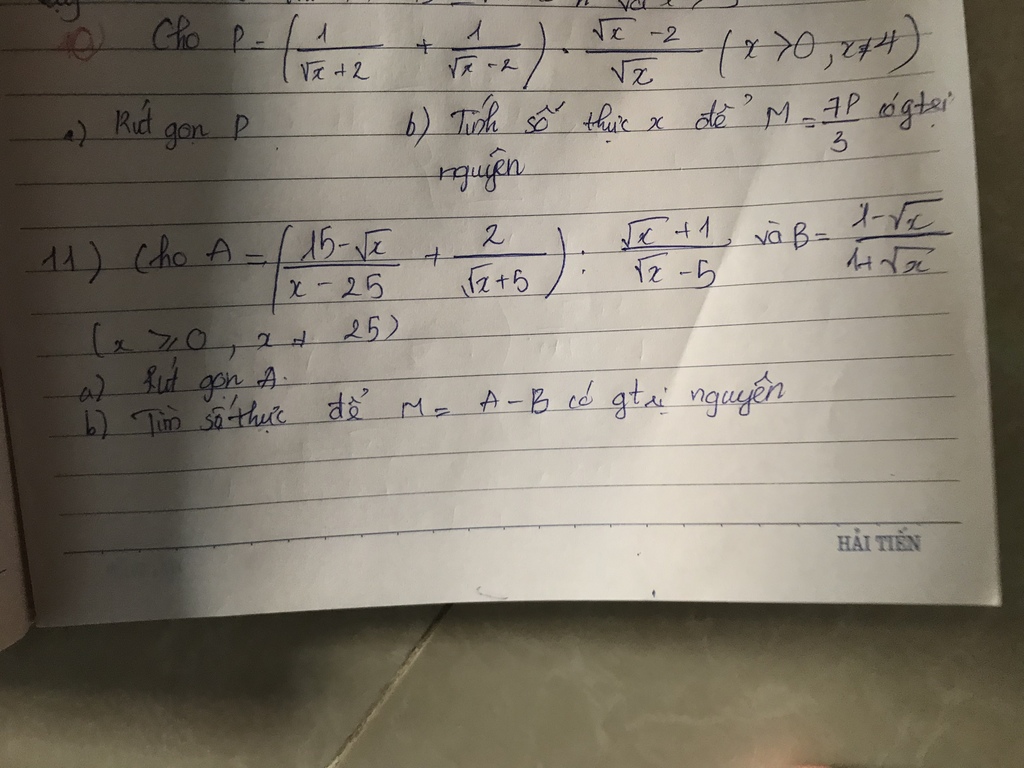 10 Cho P = (1/(√x + 2) + 1/(√x - 2)) · (√x - 2)/√x (x > 0, x ≠ 4)
a) Rút gọn P b) Tính số thực x để M = 7P/3 có gtrị
nguyên
11) Cho A = ((15 - √x)/(x - 25) + 2/(√x + 5)) : (√x + 1)/(√x - 5) và B = (1 - √x)/(1 + √x)
(x ≥ 0, x ≠ 25)
a) Rút gọn A.
b) Tìm số thực để M = A - B có gtrị nguyên
HẢI TIẾN